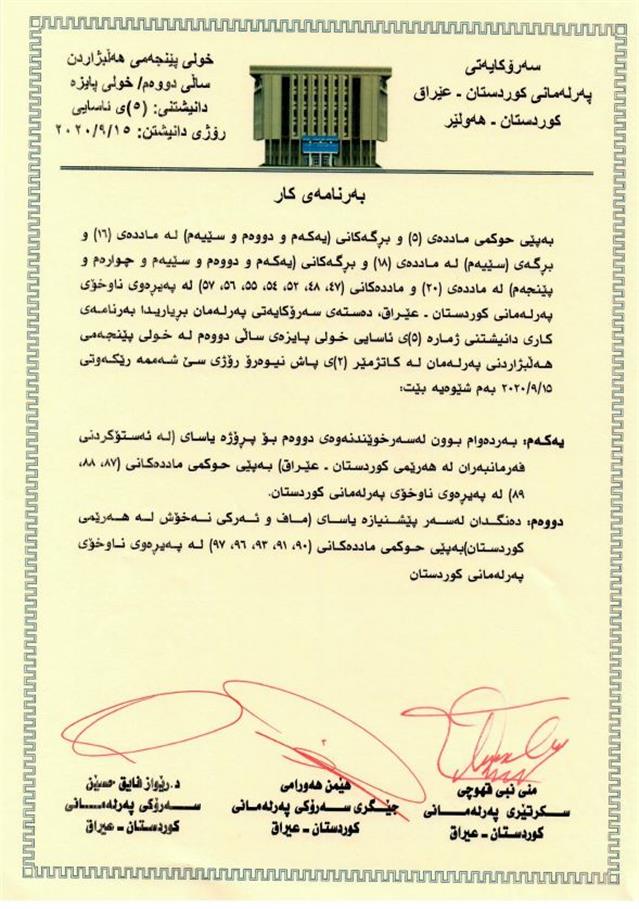 سەرۆکایەتی
پەرلەمانی کوردستان - عێراق
کوردستان - هەولێر
خولی پێنجەمی هەڵبژاردن
ساڵی دووەم/ خولی پایزە
دانیشتنی: (٥)ی ئاسایی
رۆژی دانیشتن: ٢٠٢٠/٩/١٥
بەرنامەی کار
بەپێی حوکمی ماددەی (٥) و برگەکانی (یەکەم و دووەم و سێیەم) لە ماددەی (١٦) و
برگەی (سێیەم) لە ماددەی (١٨) و برگەکانی (یەکەم و دووەم و سێیەم و چوارەم و
پێنجەم) لە ماددەی (٢٠) و ماددەکانی (٤٧، ٤٨، ٥٢، ٥٤، ٥٥، ٥٦، ٥٧) لە پەیرەوی ناوخۆی
پەرلەمانی کوردستان - عێراق، دەستەی سەرۆکایەتی پەرلەمان بریاریدا بەرنامەی
کاری دانیشتنی ژمارە (٥)ی ئاسایی خولی پایزەی ساڵی دووەم لە خولی پێنجەمی
هەڵبژاردنی پەرلەمان لە کاتژمێر (٢)ی پاش نیوەرۆ رۆژی سێ شەممە رێکەوتی
٢٠٢٠/٩/١٥ بەم شێوەیە بێت:
یەکەم: بەردەوام بوون لەسەرخوێندنەوەی دووەم بۆ پرۆژە یاسای (لە ئەستۆگرتنی
فەرمانبەران لە هەرێمی کوردستان - عێراق) بەپێی حوکمی ماددەکانی (٨٧، ٨٨،
٨٩) لە پەیرەوی ناوخۆی پەرلەمانی کوردستان.
دووەم: دەنگدان لەسەر پێشنیازە یاسای (ماف و ئەرکی نەخۆش لە هەرێمی
کوردستان)بەپێی حوکمی ماددەکانی (٩٠، ٩١، ٩٣، ٩٦، ٩٧) لە پەیرەوی ناوخۆی
پەرلەمانی کوردستان
منی نبی قهوچی
سکرتێری پەرلەمانی
کوردستان - عیراق
هێمن هەورامی
جێگری سەرۆکی پەرلەمانی
کوردستان - عیراق
د. رێواز فایق حسێن
سەرۆکی پەرلەمانی
کوردستان - عیراق